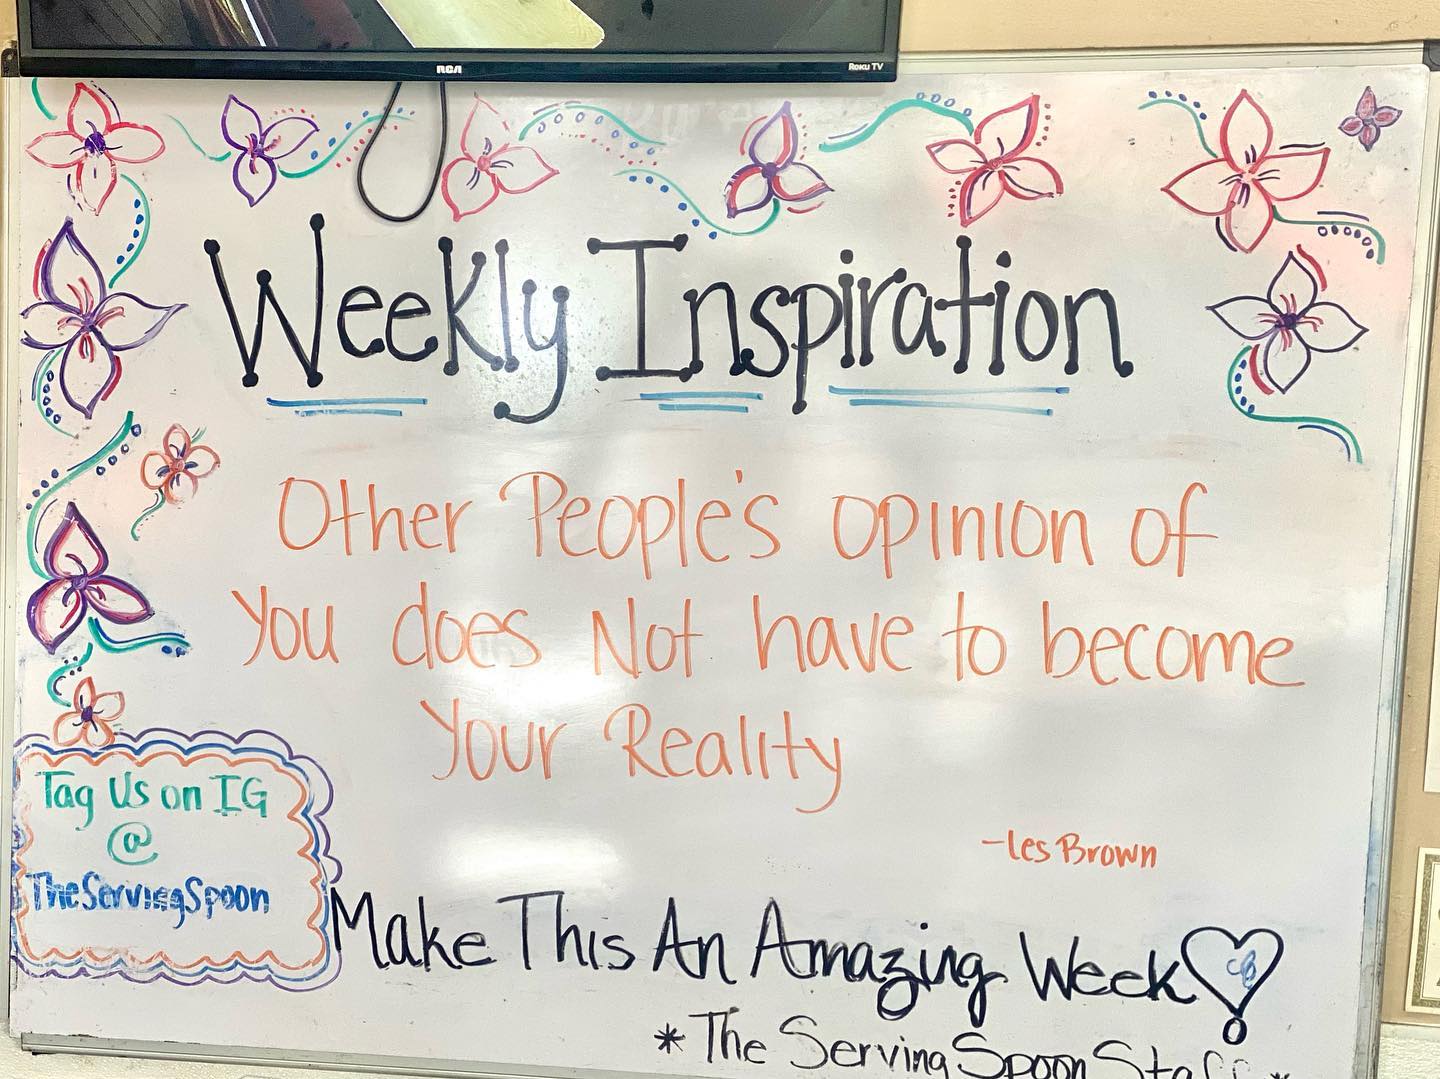 RCA
Roku TV
Weekly Inspiration
Other People's opinion of
You does Not have to become
Your Reality
-Les Brown
Tag Us on IG
@
TheServingSpoon
Make This An Amazing Week
*The Serving Spoon Staff*